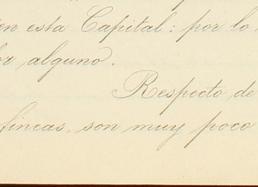 en esta Capital; por lo
or alguno.
Respecto de
fincas, son muy poco